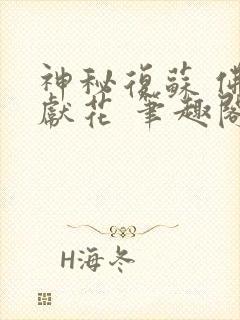 神秘復蘇 佛
獻花 筆趣閣
H海冬